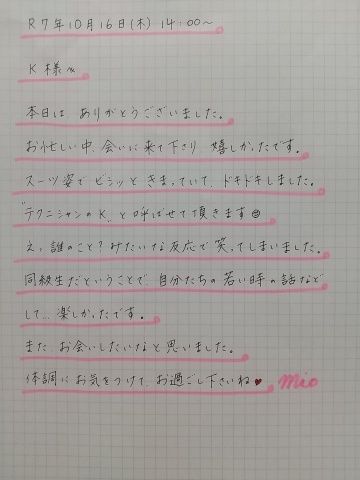 R7年10月16日(木) 14:00〜
K様へ
本日は ありがとうございました。
お忙しい中、会いに来て下さり 嬉しかったです。
スーツ姿で ビシッと きまっていて、ドキドキしました。
"テクニシャンのK"と呼ばせて頂きます☻
えっ誰のこと?みたいな反応で笑ってしまいました。
同級生だということで、自分たちの若い時の話など
して... 楽しかったです。
また お会いしたいなと思いました。
体調にお気をつけて、お過ごし下さいね♥ Mio